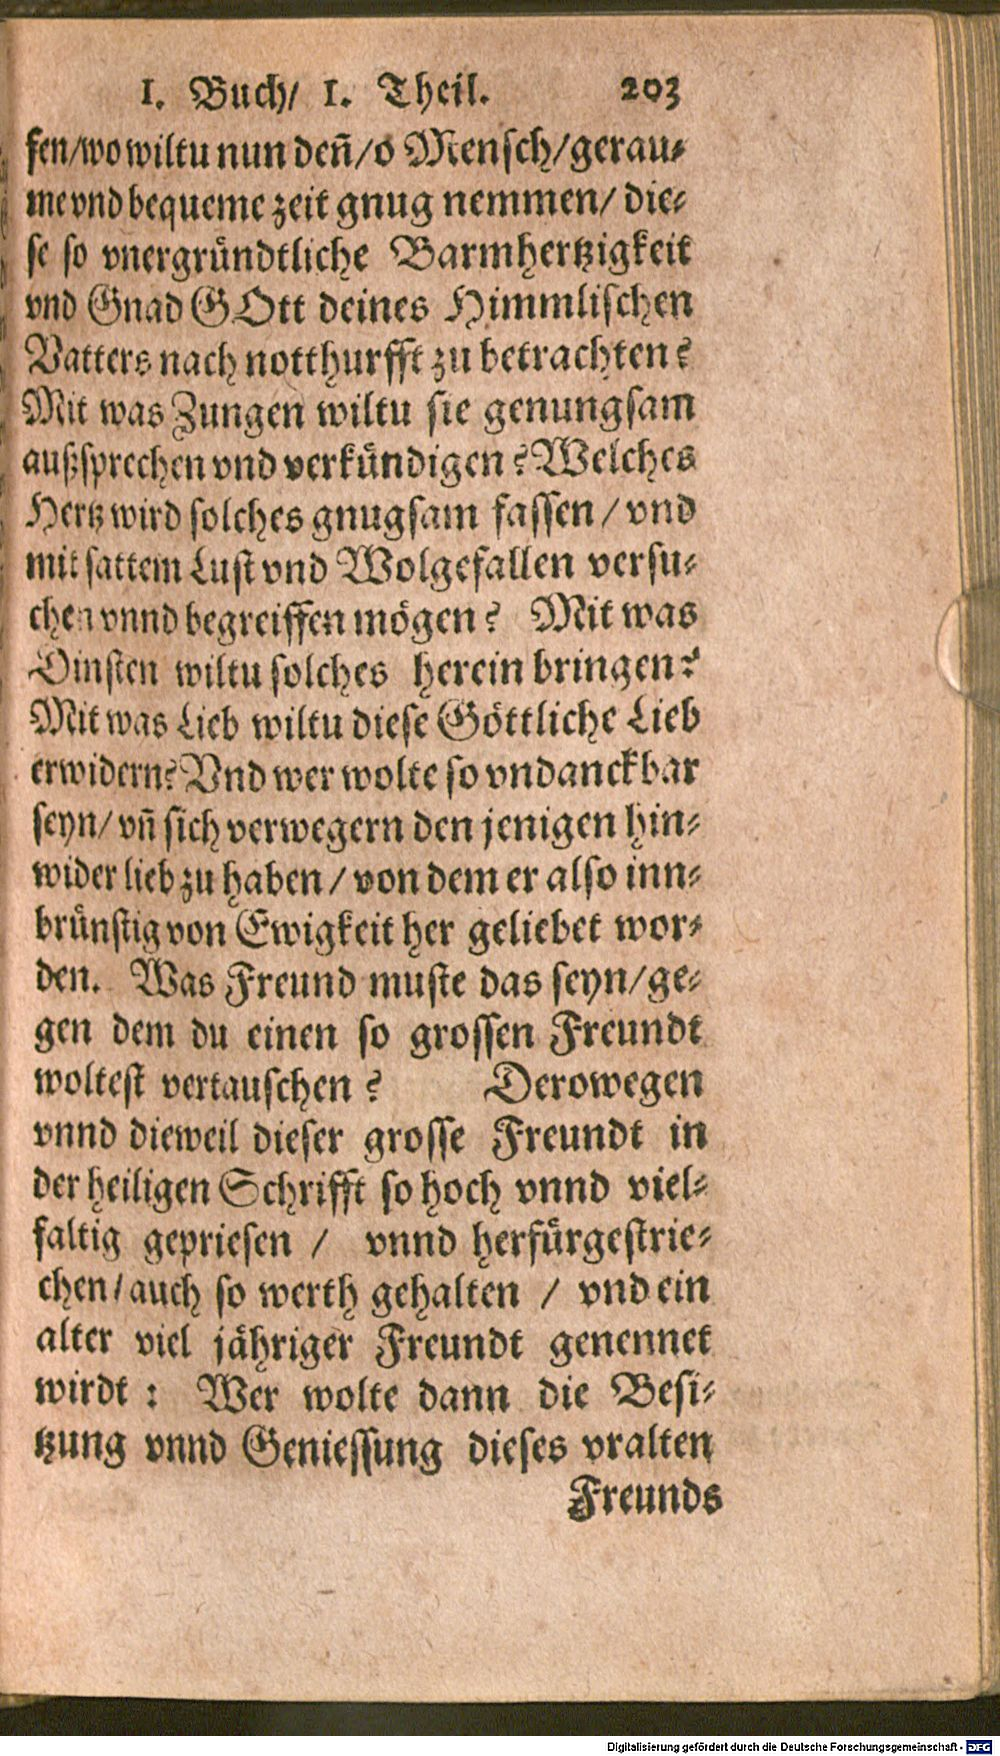 1. Buch/ 1. Theil. 203
fen/wo wiltu nun deñ/o Mensch/gerau⸗
me vnd bequeme zeit gnug nemmen/ die⸗
se so vnergründtliche Barmhertzigkeit
vnd Gnad GOtt deines Himmlischen
Vatters nach notthurfft zu betrachten?
Mit was Zungen wiltu sie genungsam
außsprechen vnd verkündigen? Welches
Hertz wird solches gnugsam fassen/ vnd
mit sattem Lust vnd Wolgefallen versu⸗
chen vnnd begreiffen mögen? Mit was
Dinsten wiltu solches herein bringen?
Mit was Lieb wiltu diese Göttliche Lieb
erwidern? Vnd wer wolte so vndanckbar
seyn/ vñ sich verwegern den jenigen hin⸗
wider lieb zu haben/ von dem er also inn⸗
brünstig von Ewigkeit her geliebet wor⸗
den. Was Freund muste das seyn/ge⸗
gen dem du einen so grossen Freundt
woltest vertauschen? Derowegen
vnnd dieweil dieser grosse Freundt in
der heiligen Schrifft so hoch vnnd viel⸗
faltig gepriesen / vnnd herfürgestrie⸗
chen/auch so werth gehalten / vnd ein
alter viel jähriger Freundt genennet
wirdt : Wer wolte dann die Besi⸗
tzung vnnd Geniessung dieses vralten
Freunds
Digitalisierung gefördert durch die Deutsche Forschungsgemeinschaft - DFG